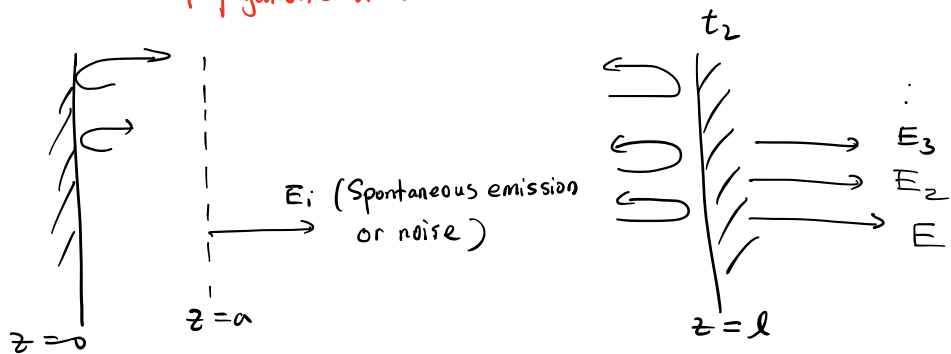 t₂
⋮
E₃
Eᵢ (Spontaneous emission
or noise)
E₂
E
z = 0
z = a
z = l